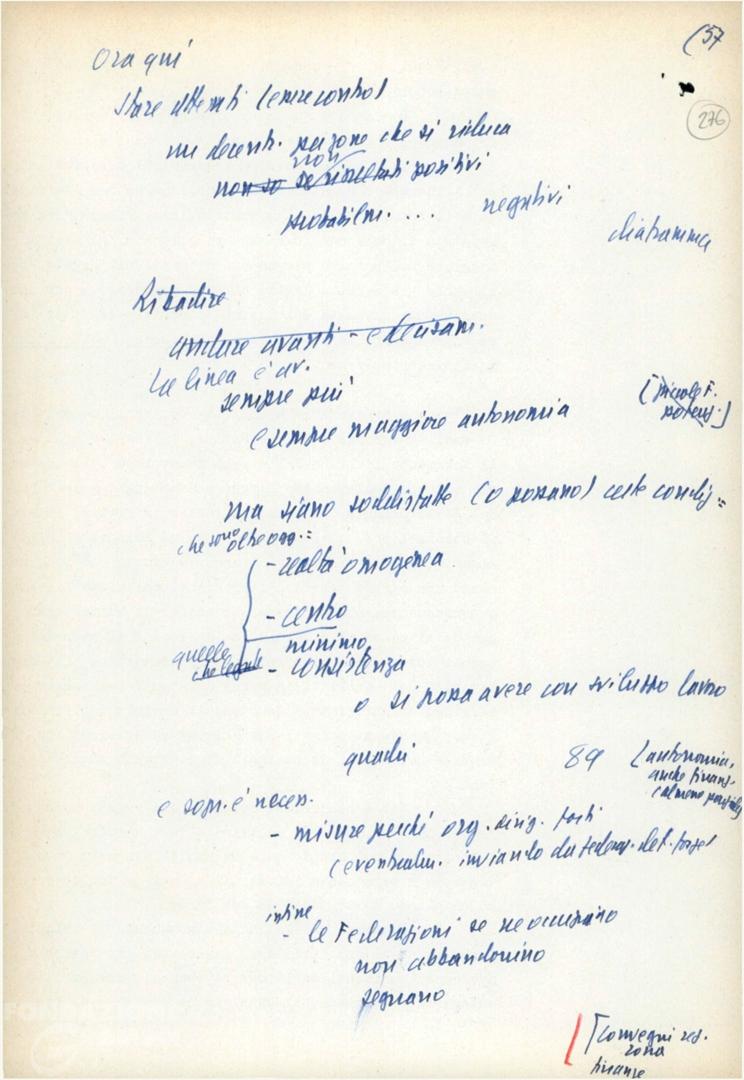 (57
276
Ora qui
stare attenti (essere contro)
un decentr. che si riduca
non so se non risultati positivi
probabilm. ... negativi
diaframma
Ribadire
andare avanti - e decisam.
La linea è av.
sempre più
e sempre maggiore autonomia
(piccole F.
potenz.)
ma siano soddisfatte (o possano) certe condiz. =
che sono oltre ogg. =
- realtà omogenea
- centro
minimo
quelle
che legate
- consistenza
o si possa avere con sviluppo lavoro
quadri 89 (autonomia,
anche finanz.
(almeno parziale)
e sopr. è necess.
- misure perché org. sing. forti
(eventualm. inviando da federaz. det. forze)
infine
- le Federazioni se ne occupino
non abbandonino
seguano
[Convegni reg.
zona
finanze
FONDAZIONE